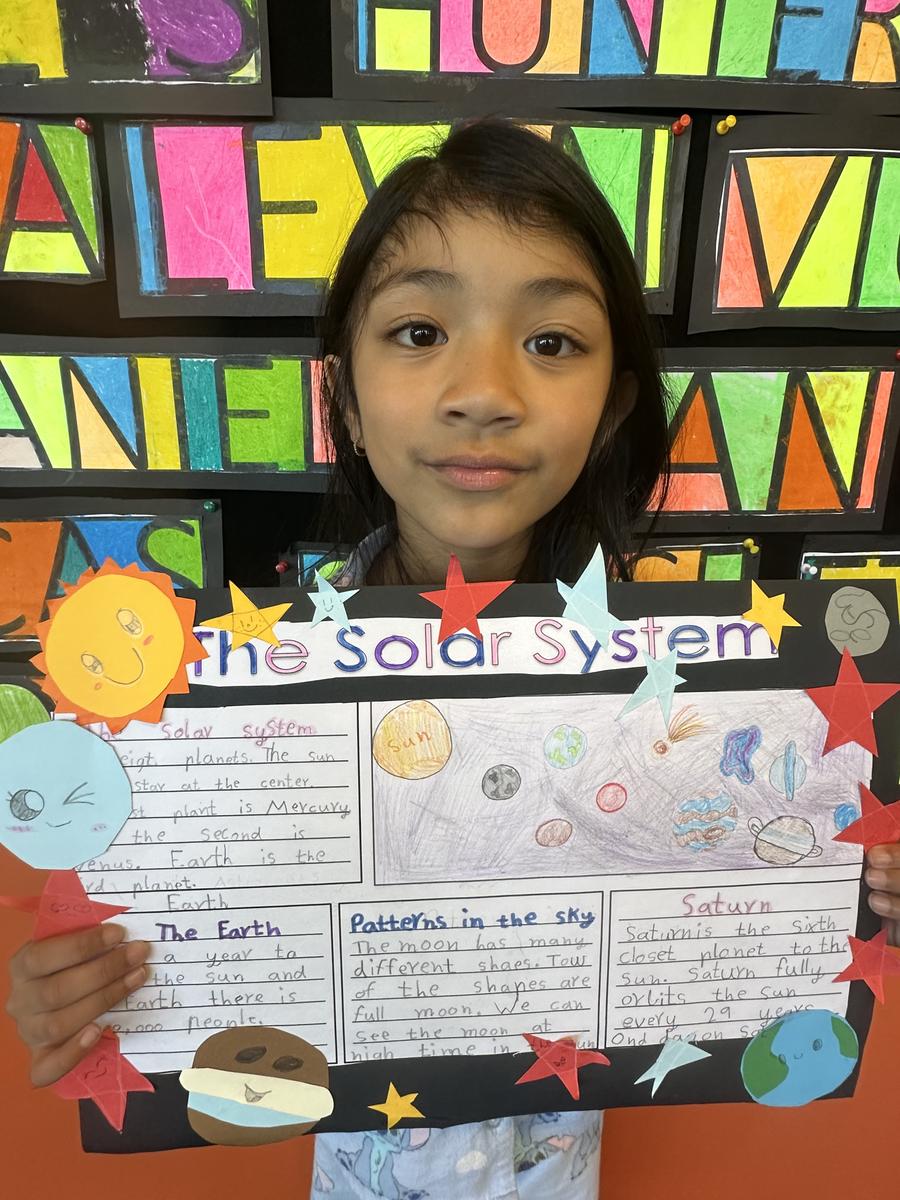 HUNTER
ALEX
VI
ANIEL
AN
CAS
The Solar System
The Solar system
eigt planets. The sun
star at the center.
st plant is Mercury
the Second is
Venus. Earth is the
rd planet.
Earth
Sun
The Earth
a year to
the sun and
Earth there is
000 people.
Patterns in the sky
The moon has many
different shaes. Tow
of the shapes are
full moon. We can
see the moon at
nigh time in the sun
Saturn
Saturn is the sixth
closet planet to the
Sun. Saturn fully
orbits the Sun
every 29 years